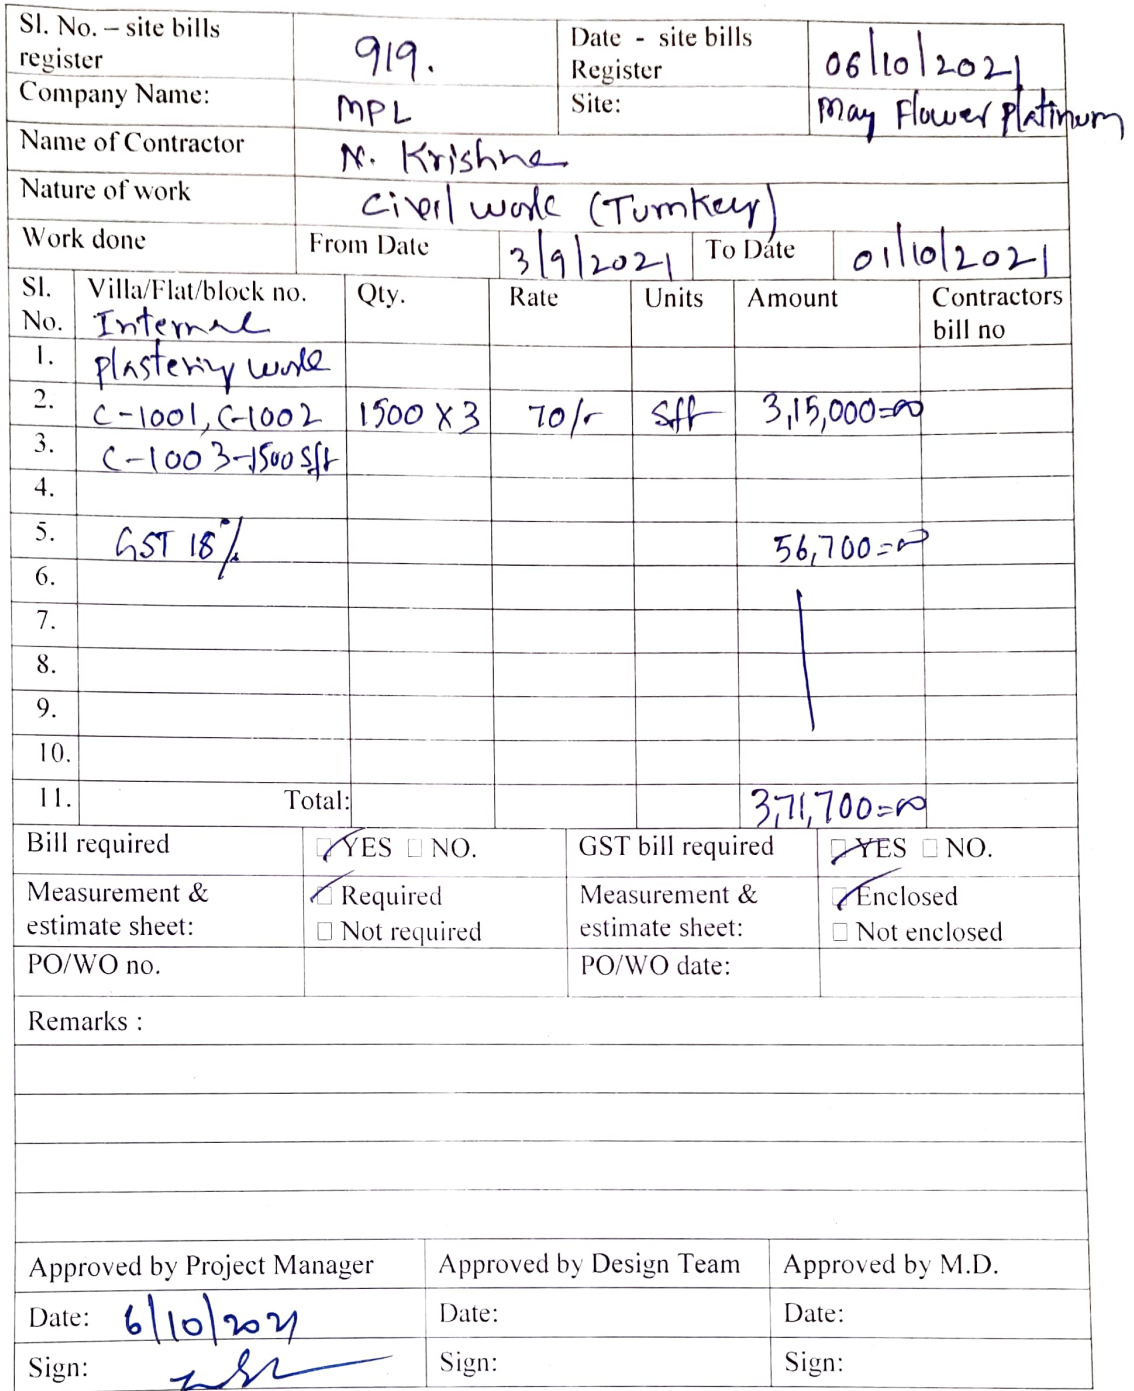 Sl. No. – site bills register 919. Date - site bills Register 06/10/2021
Company Name: MPL Site: May Flower Platinum
Name of Contractor N. Krishna
Nature of work Civil work (Turnkey)
Work done From Date 3/9/2021 To Date 01/10/2021
Sl. No. Villa/Flat/block no. Qty. Rate Units Amount Contractors bill no
Internal
1. plastering work
2. C-1001, C-1002 1500 X 3 70/- Sft 3,15,000=00
3. C-1003-1500 Sft
4.
5. GST 18% 56,700=00
6.
7.
8.
9.
10.
11. Total: 3,71,700=00
Bill required YES NO. GST bill required YES NO.
Measurement & estimate sheet: Required Measurement & estimate sheet: Enclosed
Not required Not enclosed
PO/WO no. PO/WO date:
Remarks :
Approved by Project Manager Approved by Design Team Approved by M.D.
Date: 6/10/2021 Date: Date:
Sign: Sign: Sign: